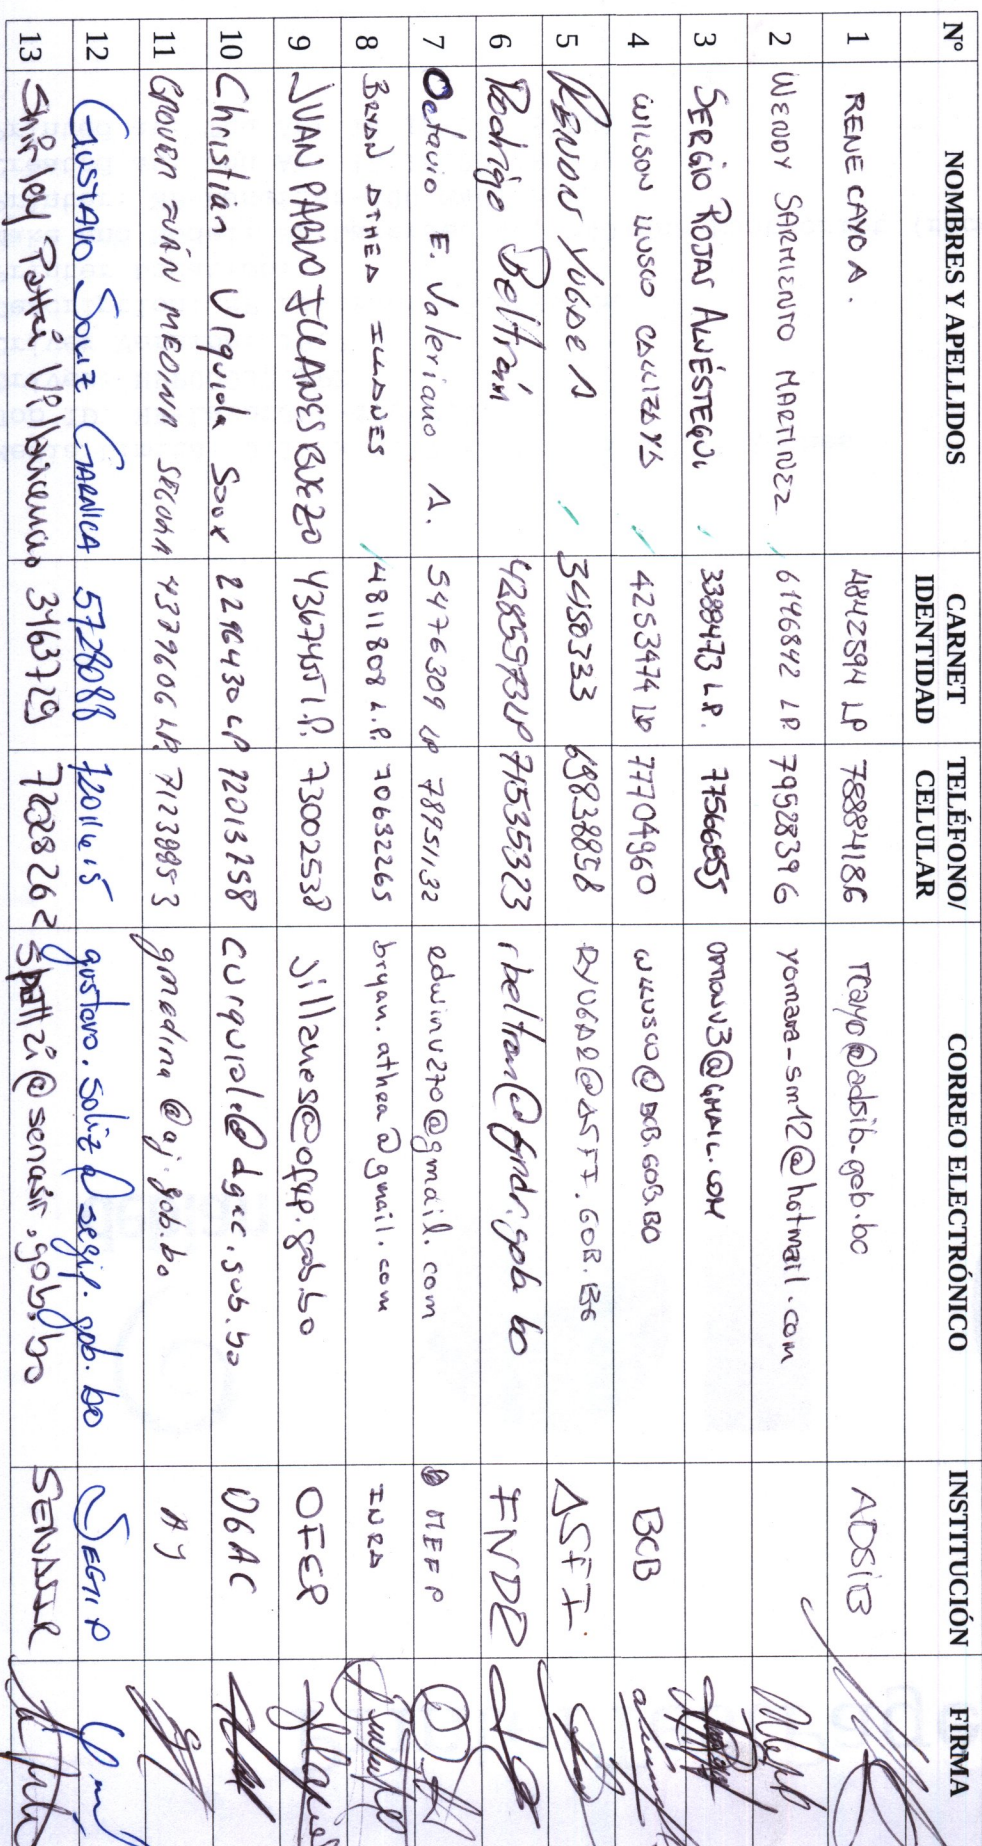 N° NOMBRES Y APELLIDOS CARNET IDENTIDAD TELÉFONO/ CELULAR CORREO ELECTRÓNICO INSTITUCIÓN FIRMA
1 RENE CAYO A. 4842594 LP 78884186 rcayo@adsib.gob.bo ADSIB
2 WENDY SARMIENTO MARTINEZ 6146842 LP 79528396 yomara-sm12@hotmail.com
3 SERGIO ROJAS ALVÉSTEGUI 3388473 L.P. 77566855 omauv3@GMAIL.COM
4 WILSON LLUSCO CALLIZAYA 4253474 LP 77704960 WLLUSCO@BCB.GOB.BO BCB
5 3450333 69838858 ASFI.
6 Rodrigo Beltrán 4285573LP 71535323 rbeltran@fndr.gob.bo FNDR
7 Octavio E. Valeriano A. 5476309 LP 78951132 edwinv270@gmail.com MEFP
8 BRYAN ATHEA ILLANES 4811808 L.P. 70632265 bryan.athea@gmail.com INRA
9 JUAN PABLO ILLANES BUEZO 4367455 L.P. 73002538 jillanes@ofep.gob.bo OFEP
10 Christian Urquiola Soux 2296430 LP 72013758 curquiola@dgac.gob.bo DGAC
11 GROVER IVÁN MEDINA 4379606 LP. 71239953 gmedina@aj.gob.bo AJ
12 GUSTAVO SOLIZ GARNICA 5728088 72011615 gustavo.soliz@segip.gob.bo SEGIP
13 Shirley Patti Villavicencio 3463729 72028262 spatti@senasir.gob.bo SENASIR